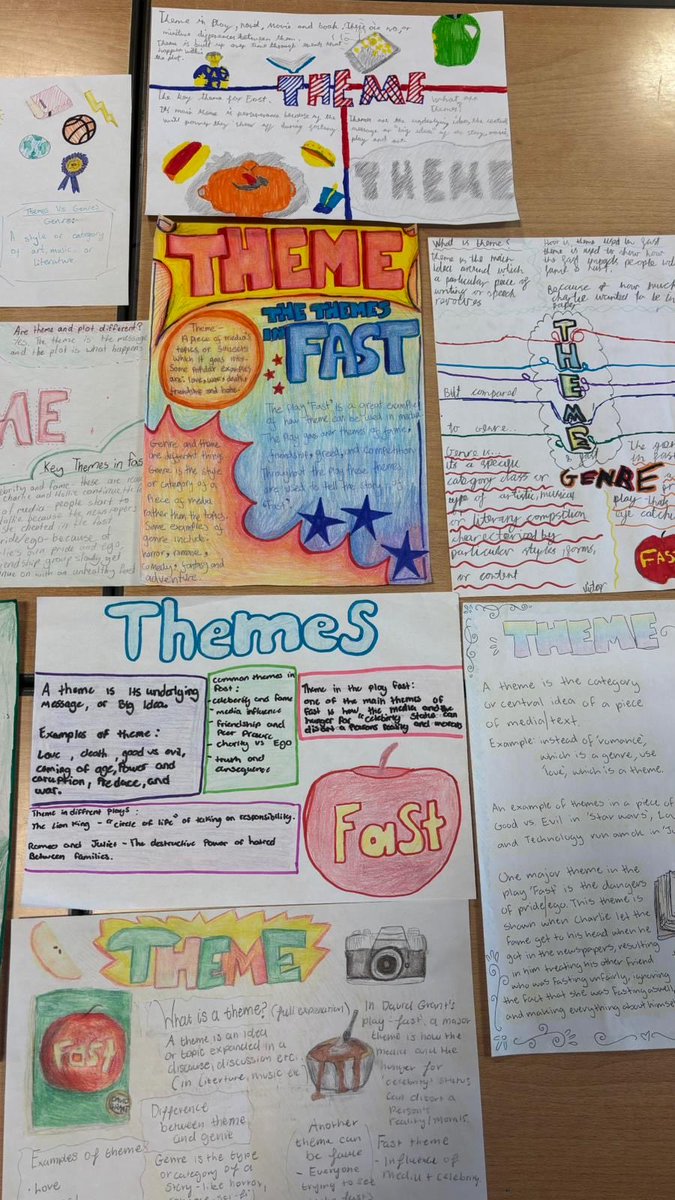 Theme in Play, novel, movie and book, There are no, or
miniture differences between them.
Theme is built up over time through events that
happen within
the plot.
THEME
The key theme for Fast.
It's main theme is perseverance because of the
will power they show off during
What are
themes?
Themes are the underlying idea, the central
message or "big idea" of a story, movie,
play and
THEME
Themes Vs Genres
Genres-
A style or category
of art, music or
literature
THEME
THE THEMES
IN FAST
Theme -
A piece of media's
topics or subjects
which it goes into.
Some popular examples
are: love, war, death,
friendship and hate.
The play "Fast" is a great example
of how theme can be used in media.
The play goes over themes of fame,
friendship, greed, and competition.
Throughout the play these themes
are used to tell the story of
"Fast".
Genre and theme
are different things
Genre is the style
or category of a
Piece of media
rather than the topics.
Some examples of
genre include:
horror, romance,
comedy, fantasy and
adventure.
Are theme and plot different?
Yes. The theme is the message
and the plot is what happens
ME
Key Themes in Fast
celebrity and fame - these are
of media people start to
because the newspapers
pride/ego - because of
pride and ego,
friendship group slowly get
on with an unhealthy fast
What is theme?
theme is the main
idea around which
a particular piece of
writing or speech
revolves
How is theme used in fast
theme is used to show how
the fast impacts people with
fame & hurt.
Because of how much
charlie wanted to be in
paper
THEME
But compared
to genre...
GENRE
Genre is...
its a specific
category class or
type of artistic, musical
or literary compostion
characterized by
particular styles, forms,
or content
The genre
in Fast
play that
eye catch
FAST
Victor
Themes
A theme is its underlying
message, or Big Idea.
Examples of theme:
Love, death, good vs evil,
coming of age, Power and
corruption, Prejduce, and
war.
common themes in
Fast:
- celeberity and fame
- media influence
- friendship and
Peer Pressure
- charity vs Ego
- truth and
consequence
Theme in the play fast:
one of the main themes of
fast is how the media and the
hunger for "celebrity status can
distort a Persons reality and morals
Theme in diffrent plays:
The Lion King - "circle of life" of taking on responsibility.
Romeo and Juliet - The destructive Power of hatred
Between families.
FaSt
THEME
A theme is the category
or central idea of a piece
of media/text.
Example: instead of 'romance',
which is a genre, use
'love', which is a theme.
An example of themes in a piece of
Good vs. Evil in 'Star wars',
and Technology run amok in
One major theme in the
play 'Fast' is the dangers
of pride/ego. This theme is
shown when Charlie let the
fame get to his head when he
got in the newspapers, resulting
in him treating his other friend
who was fasting unfairly, ignoring
the fact that she was fasting aswell
and making everything about himself
THEME
Fast
DAVID
GRANT
What is a theme? (full explanation)
A theme is an idea
or topic expanded in a
discourse, discussion etc.
(in literture, music etc
In David Grant's
play - fast, a major
theme is how the
media and the
hunger for
celebrity status
can distort a
person's
reality/morals.
Difference
between theme
and genre
Genre is the type
or category of a
story - like horror,
Another
theme can
be
- Everyone
trying to
Fast theme
- Influence of
media + celebrity
Examples of theme
• Love